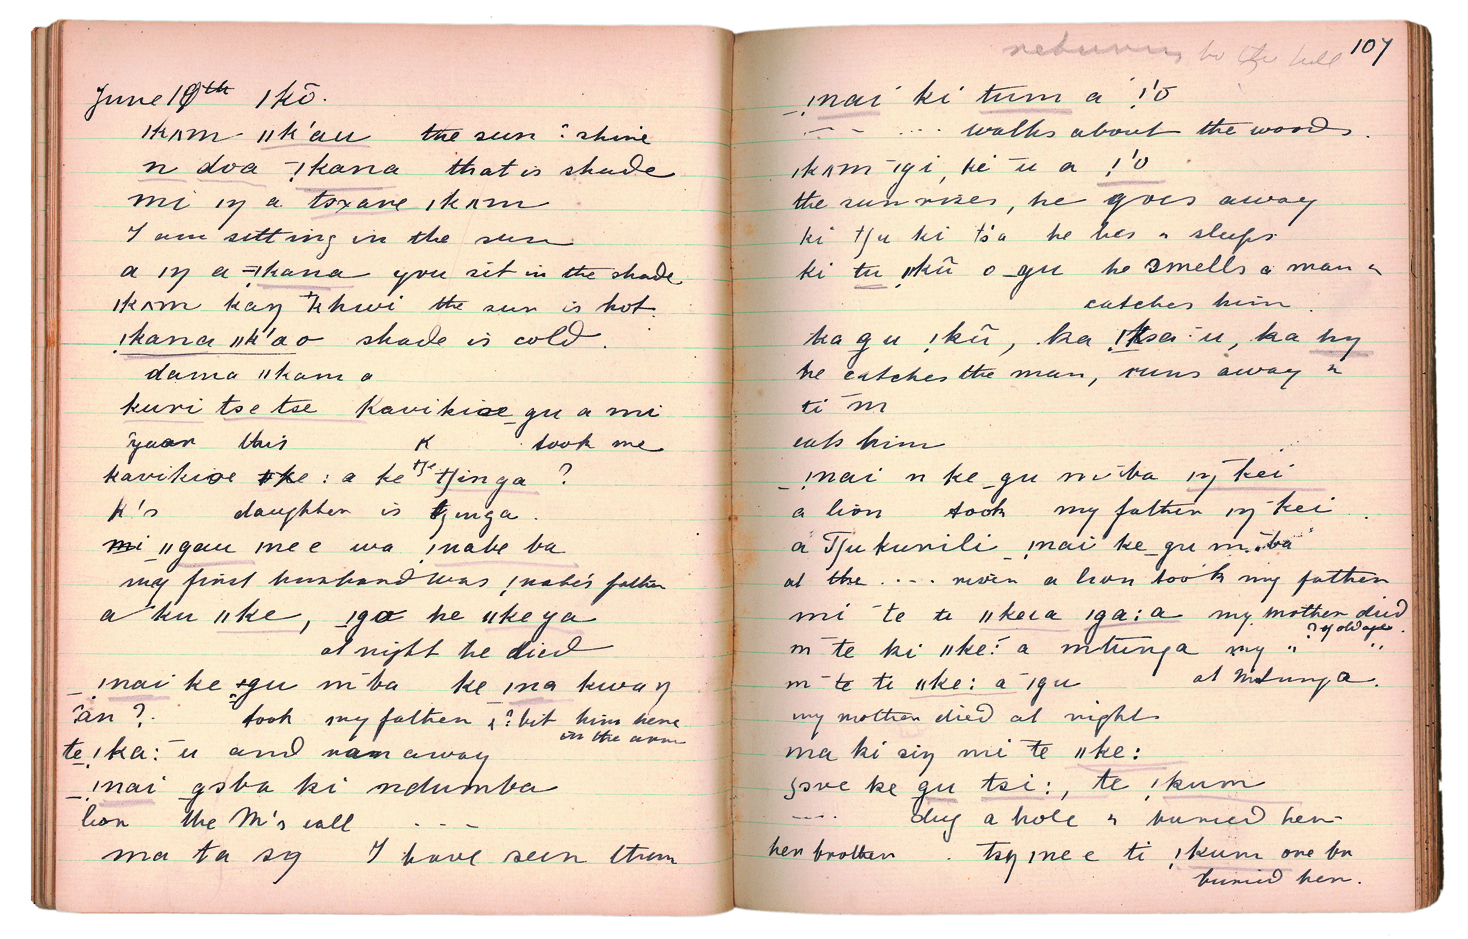 June 19th ǀkō.
ǀkʌm ǁk'au the sun ? shine
n doa ǃkana that is shade
mi ŋ a tsxare ǀkʌm
I am sitting in the sun
a ŋ a ǃkana you sit in the shade
ǀkʌm kaŋ khwi the sun is hot.
ǃkana ǁk'ao shade is cold.
dama ǁkama
kuri tse tse Kavikise gu a mi
year this K took me
kavikise ǁke: a ke tʃinga ?
K's daughter is tjinga.
mi ǁgau nee wa ǃnabe ba
my first husband was ǃnabe's father
a ku ǁke, ǀga he ǁkeya
at night he died
_ǃnai ke gu m ba ke ǃna kway
ān ? took my father & ? bit him here
in the arm
te ǃka: ū and ran away
_ǃnai gɔba ki ndumba
lion the M's call - - -
ma ta sŋ I have seen them
107
to the
_ǃnai ki tum a ǃ'ō
- - - - walks about the woods.
ǀkʌm ǀgi, ke ū a ǃ'ō
the sun rises, he goes away
ki tʃu ki ts'a he lies & sleeps
ki tu ǁkū o_gu he smells a man &
catches him
ka gu ǃkū, ka ǃksa ū, ka hŋ
he catches the man, runs away &
ti m
eats him
_ǃnai n ke_gu m ba ŋ kei
a lion took my father ŋ kei.
a Tʃukurili _ǃnai ke_gu m ba
at the .... river a lion took my father
mi te te ǁkea ǀga: a my mother died
? of old age.
m te ki ǁke: a mtunga my " "
m te te ǁke: a ǀgu at Mtunga.
my mother died at night
ma ki siŋ mi te ǁke:
ke gu tsi:, te ǃkum
---- dug a hole & buried her
her brother. tsŋ nee ti ǃkum one br
buried her.